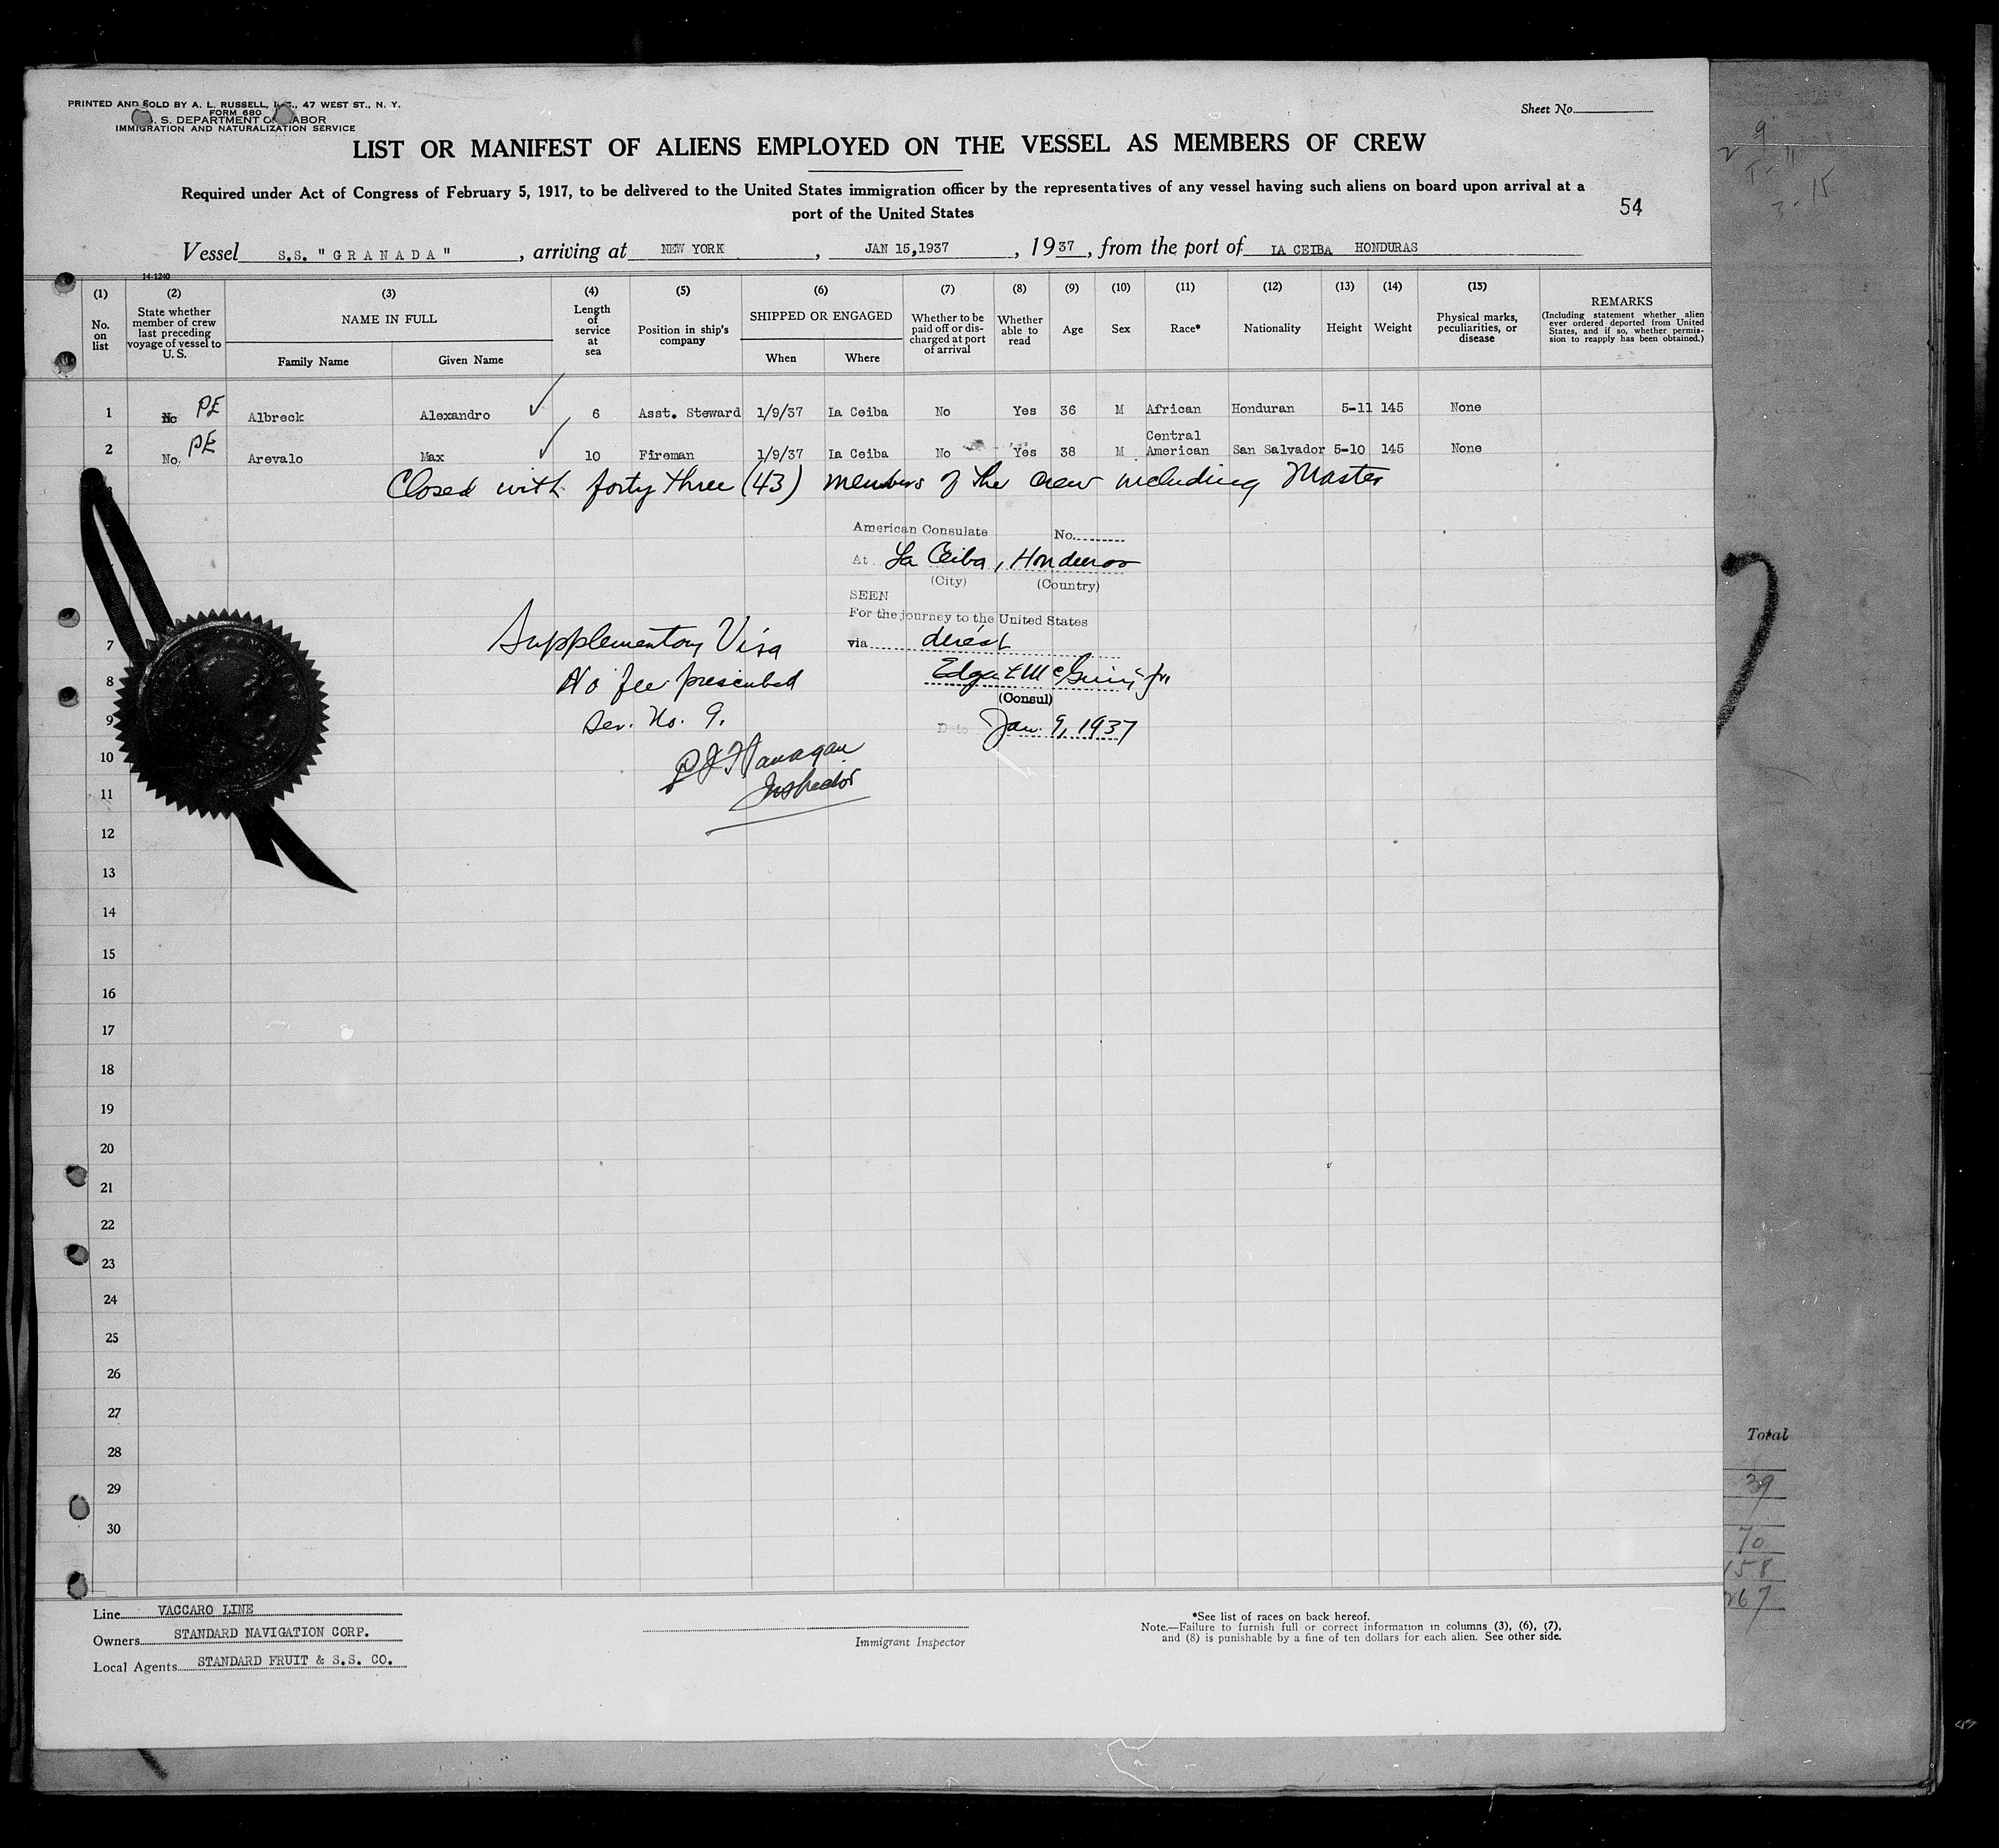 PRINTED AND SOLD BY A. L. RUSSELL, 47 WEST ST., N. Y.
FORM 680
S. DEPARTMENT OF LABOR
IMMIGRATION AND NATURALIZATION SERVICE
Sheet No.
LIST OR MANIFEST OF ALIENS EMPLOYED ON THE VESSEL AS MEMBERS OF CREW
Required under Act of Congress of February 5, 1917, to be delivered to the United States immigration officer by the representatives of any vessel having such aliens on board upon arrival at a
port of the United States
54
Vessel S.S. "GRANADA", arriving at NEW YORK, JAN 15,1937, 1937, from the port of LA CEIBA HONDURAS
14-1240
(1) No. on list
(2) State whether member of crew last preceding voyage of vessel to U. S.
(3) NAME IN FULL
Family Name
Given Name
(4) Length of service at sea
(5) Position in ship's company
(6) SHIPPED OR ENGAGED
When
Where
(7) Whether to be paid off or discharged at port of arrival
(8) Whether able to read
(9) Age
(10) Sex
(11) Race*
(12) Nationality
(13) Height
(14) Weight
(15) Physical marks, peculiarities, or disease
REMARKS
(Including statement whether alien ever ordered deported from United States, and if so, whether permission to reapply has been obtained.)
1 No PE Albreck Alexandro 6 Asst. Steward 1/9/37 La Ceiba No Yes 36 M African Honduran 5-11 145 None
2 No. PE Arevalo Max 10 Fireman 1/9/37 La Ceiba No Yes 38 M Central American San Salvador 5-10 145 None
Closed with forty three (43) members of the crew including Master
American Consulate No.
At La Ceiba, Honduras
(City) (Country)
SEEN
For the journey to the United States
via direct
(Consul)
Date Jan. 9, 1937
Supplementary Visa
No fee prescribed
Ser. No. 9.
P J Flanagan
Inspector
7
8
9
10
11
12
13
14
15
16
17
18
19
20
21
22
23
24
25
26
27
28
29
30
Line VACCARO LINE
Owners STANDARD NAVIGATION CORP.
Local Agents STANDARD FRUIT & S.S. CO.
Immigrant Inspector
*See list of races on back hereof.
Note.—Failure to furnish full or correct information in columns (3), (6), (7),
and (8) is punishable by a fine of ten dollars for each alien. See other side.
Total
39
70
158
267